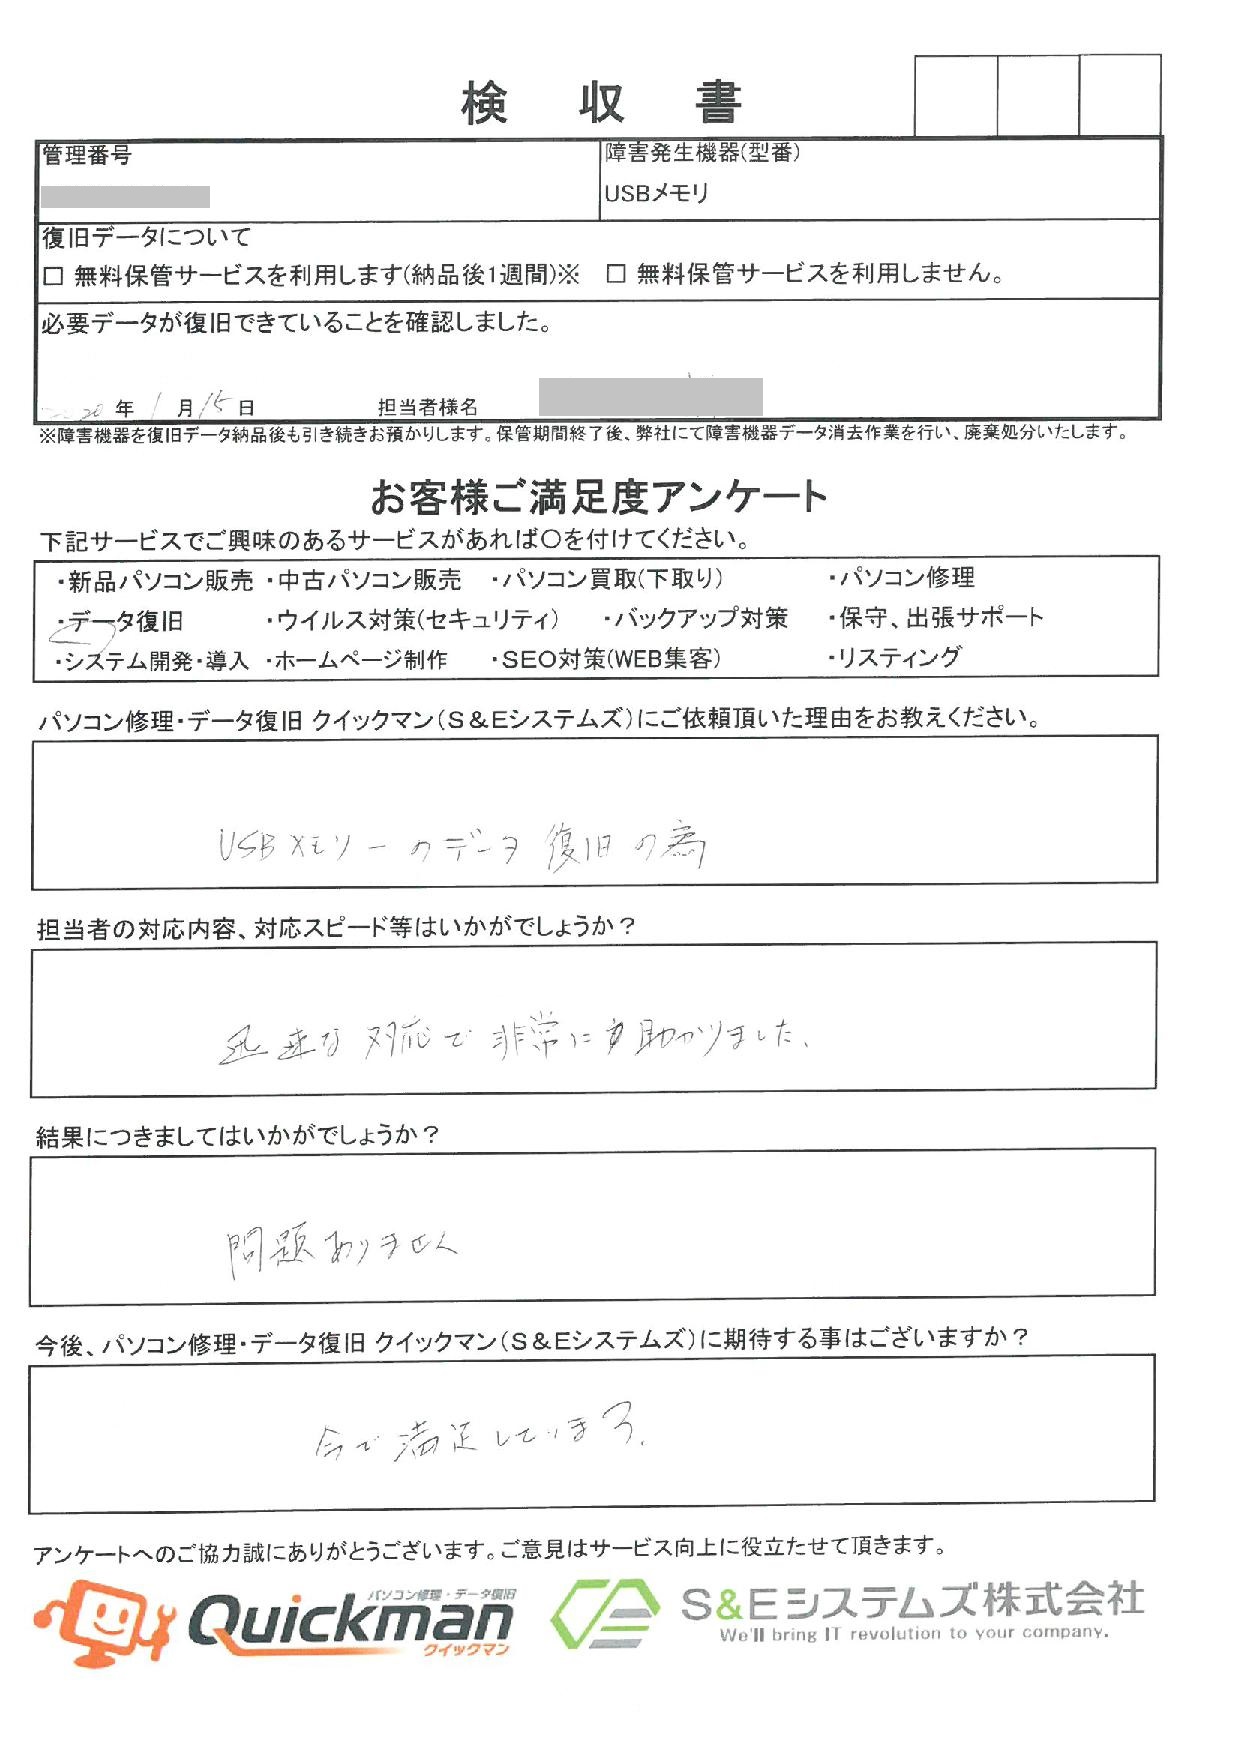 検 収 書
管理番号
障害発生機器(型番)
USBメモリ
復旧データについて
□ 無料保管サービスを利用します(納品後1週間)※ □ 無料保管サービスを利用しません。
必要データが復旧できていることを確認しました。
2020 年 1 月 15 日 担当者様名
※障害機器を復旧データ納品後も引き続きお預かりします。保管期間終了後、弊社にて障害機器データ消去作業を行い、廃棄処分いたします。
お客様ご満足度アンケート
下記サービスでご興味のあるサービスがあれば〇を付けてください。
・新品パソコン販売 ・中古パソコン販売 ・パソコン買取(下取り) ・パソコン修理
・データ復旧 ・ウイルス対策(セキュリティ) ・バックアップ対策 ・保守、出張サポート
・システム開発・導入 ・ホームページ制作 ・SEO対策(WEB集客) ・リスティング
パソコン修理・データ復旧 クイックマン(S&Eシステムズ)にご依頼頂いた理由をお教えください。
USBメモリーのデータ復旧の為
担当者の対応内容、対応スピード等はいかがでしょうか?
迅速な対応で非常に助かりました、
結果につきましてはいかがでしょうか?
問題ありません
今後、パソコン修理・データ復旧 クイックマン(S&Eシステムズ)に期待する事はございますか?
今で満足しています.
アンケートへのご協力誠にありがとうございます。ご意見はサービス向上に役立たせて頂きます。
パソコン修理・データ復旧
Quickman
クイックマン
S&Eシステムズ株式会社
We'll bring IT revolution to your company.